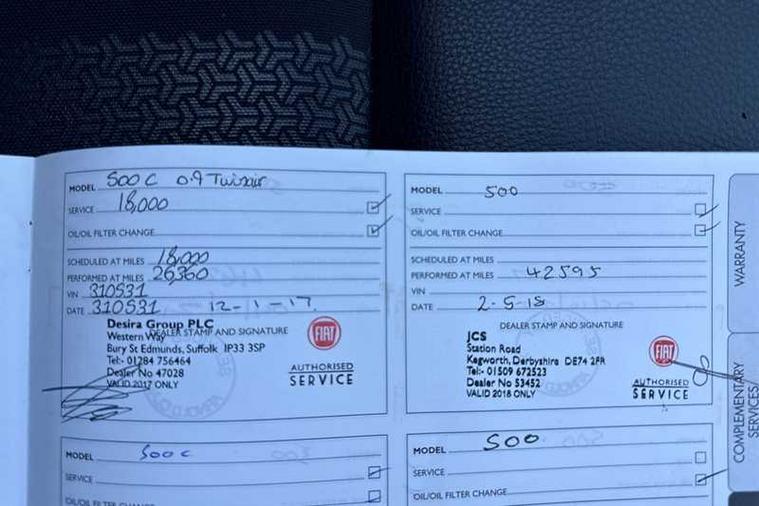 MODEL 500 C 0.9 Twinair
SERVICE 18,000
OIL/OIL FILTER CHANGE
SCHEDULED AT MILES 18,000
PERFORMED AT MILES 26360
VIN 310531
DATE 310531 12-1-17.
DEALER STAMP AND SIGNATURE
Desira Group PLC
Western Way
Bury St Edmunds, Suffolk IP33 3SP
Tel:- 01284 756464
Dealer No 47028
VALID 2017 ONLY
FIAT
AUTHORISED
SERVICE
MODEL 500
SERVICE
OIL/OIL FILTER CHANGE
SCHEDULED AT MILES
PERFORMED AT MILES 42595
VIN
DATE 2-5-18
DEALER STAMP AND SIGNATURE
JCS
Station Road
Kegworth, Derbyshire DE74 2FR
Tel:- 01509 672523
Dealer No 53452
VALID 2018 ONLY
FIAT
AUTHORISED
SERVICE
MODEL 500 C
SERVICE
OIL/OIL FILTER CHANGE
MODEL 500
SERVICE
OIL/OIL FILTER CHANGE
WARRANTY
COMPLEMENTARY
SERVICES